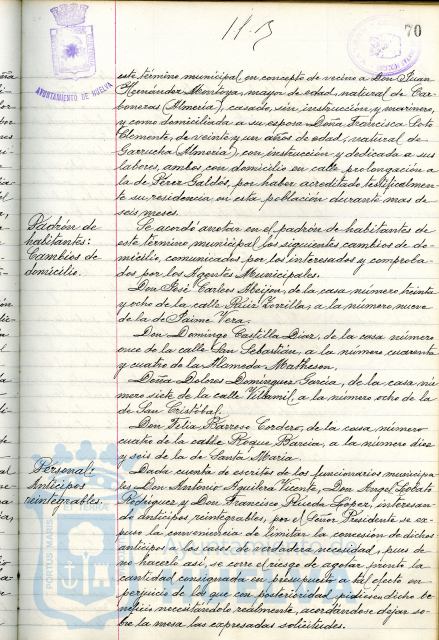 70
AYUNTAMIENTO DE HUELVA
este término municipal, en concepto de vecino a Don Juan
Hernández Montoya, mayor de edad, natural de Car-
boneras (Almería), casado, sin instrucción, y marinero,
y como domiciliada a su esposa Doña Francisca Soto
Clemente, de veinte y un años de edad, natural de
Garrucha (Almería), con instrucción y dedicada a sus
labores, ambos con domicilio en calle prolongación a
la de Pérez Galdós, por haber acreditado testificalmen-
te su residencia en esta población durante mas de
seis meses.
Padrón de
habitantes:
Cambios de
domicilio.
Se acordó anotar en el padrón de habitantes de
este término municipal los siguientes cambios de do-
micilio, comunicados por los interesados y comproba-
dos por los Agentes Municipales.
Don José Carlos, de la casa número treinta
y ocho de la calle Ruiz Zorrilla, a la número nueve
de la de Jaime Vera.
Don Domingo Castilla Díaz, de la casa número
once de la calle San Sebastián, a la número cuarenta
y cuatro de la Alameda Matheson.
Doña Dolores Domínguez García, de la casa nú-
mero siete de la calle Villamil, a la número ocho de la
de San Cristóbal.
Don Félix Barroso Cordero, de la casa número
cuatro de la calle Roque Barcia, a la número diez
y seis de la de Santa María.
Personal:
Anticipos
reintegrables.
Dada cuenta de escritos de los funcionarios municipa-
les Don Antonio Aguilera Vicente, Don Angel Lobato
Rodríguez y Don Francisco Rueda López, interesan-
do anticipos reintegrables, por el Señor Presidente se ex-
puso la conveniencia de limitar la concesión de dichos
anticipos a los casos de verdadera necesidad, pues de
no hacerlo así, se corre el riesgo de agotar pronto la
cantidad consignada en presupuesto a tal efecto en
perjuicio de los que con posterioridad pidiesen dicho be-
neficio necesitándolo realmente, acordándose dejar so-
bre la mesa las expresadas solicitudes.
PORTUS MARIS
ET TERRÆ